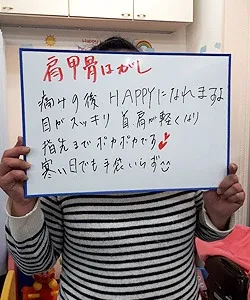 肩甲骨はがし
痛みの後 HAPPYになれますよ
目がスッキリ 首肩が軽くなり
指先までポカポカでる
寒い日でも手袋いらず